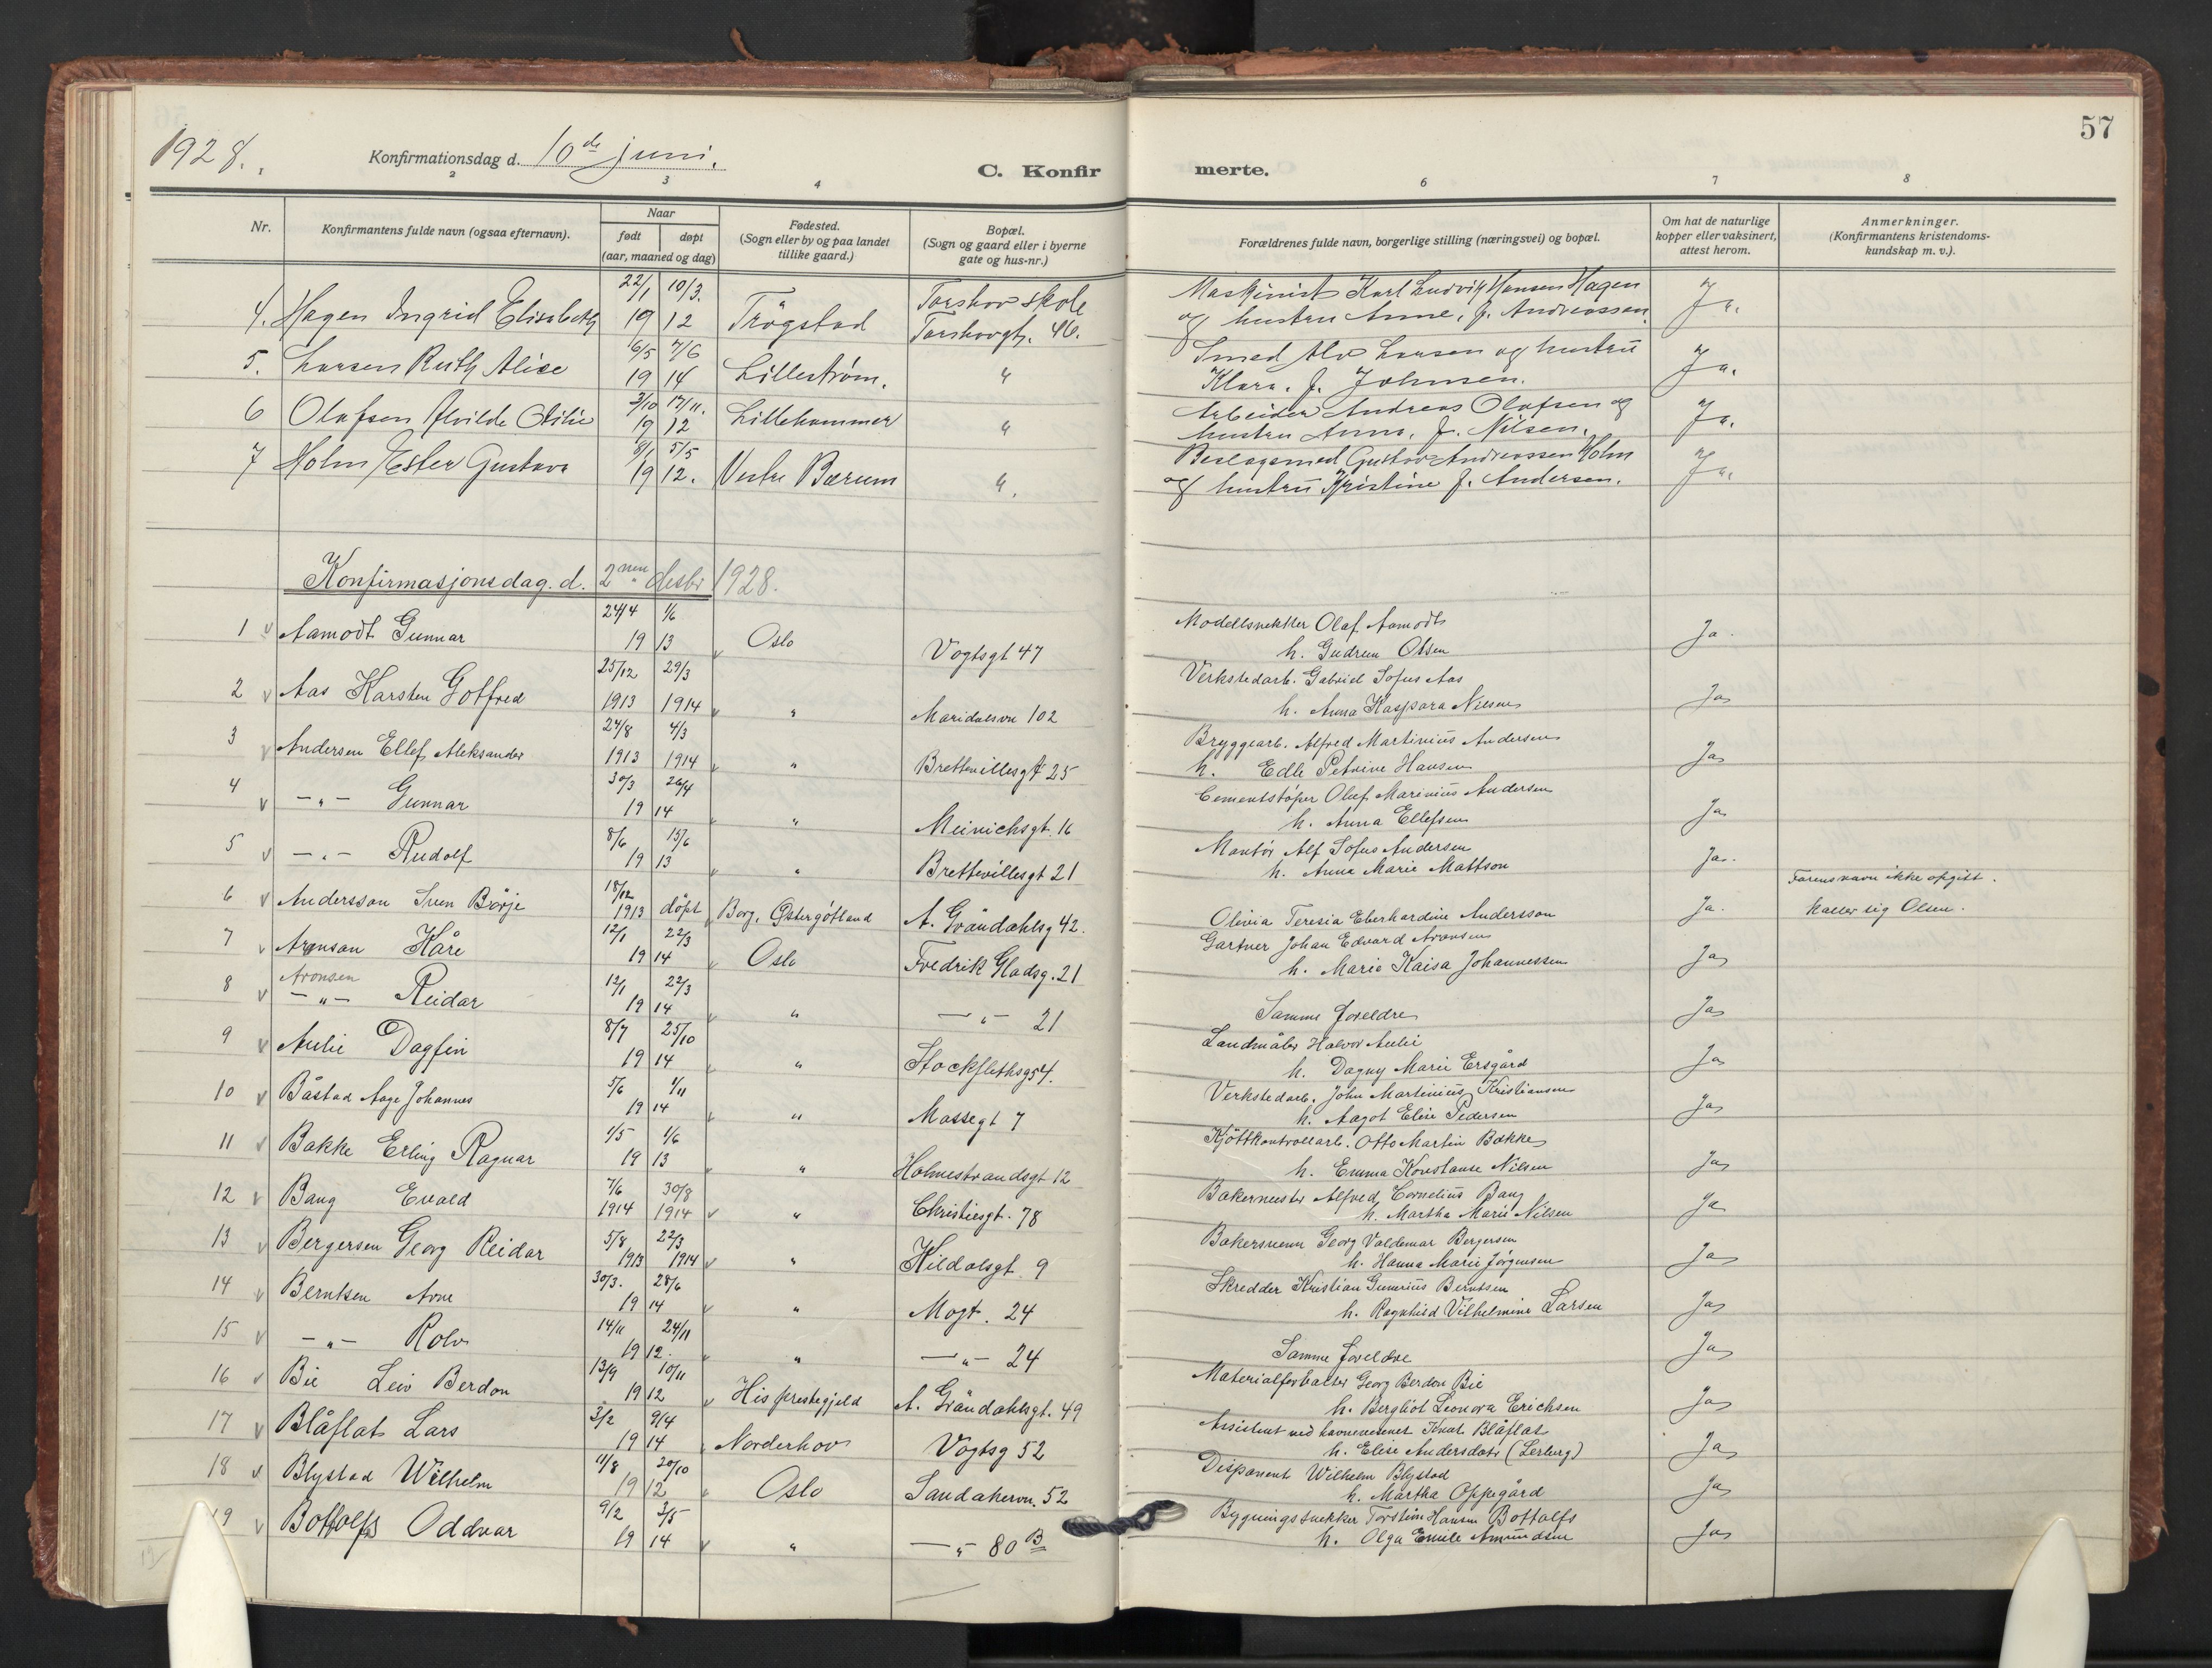 57
1928.
Konfirmationsdag d. 10de juni.
C. Konfirmerte.
2 3 4 6 7 8
Nr.
Konfirmantens fulde navn (ogsaa efternavn).
Naar
født døpt
(aar, maaned og dag)
Fødested.
(Sogn eller by og paa landet
tillike gaard.)
Bopæl.
(Sogn og gaard eller i byerne
gate og hus-nr.)
Forældrenes fulde navn, borgerlige stilling (næringsvei) og bopæl.
Om hat de naturlige
kopper eller vaksinert,
attest herom.
Anmerkninger.
(Konfirmantens kristendoms-
kundskap m. v.).
22/1 10/3. Torshov skole Maskinist Karl Ludvik Hansen Hagen
4. Hagen Ingrid Elisabeth 19 12 Trögstad Torshovgt. 46. og hustru Anne, f. Andreassen. Ja.
6/5 7/6 Smed Alv Larsen og hustru
5. Larsen Ruth Alise 19 14 Lilleström. " Klara. f. Johnsen. Ja.
3/10 17/11. Arbeider Andreas Olafsen og
6 Olafsen Alvilde Otilie 19 12 Lillehammer " hustru Anna, f. Nilsen. Ja.
8/1 5/5 Beslagsmed Gustav Andreassen Holm
7 Holm Ester Gustava 19 12. Vestre Bærum " og hustru Kristine f. Andersen. Ja.
Konfirmasjonsdag. d. 2nen desbr 1928.
24/4 1/6 Modellsnekker Olaf Aamodt
1 v Aamodt Gunnar 19 13 Oslo Vogtsgt 47 h. Gudrun Olsen Ja.
25/12 29/3 Verkstedarb. Gabriel Sofus Aas
2 v Aas Karsten Gotfred 1913 1914 " Maridalsvn 102 h. Anna Kaspara Nilsen Ja
24/8 4/3 Bryggearb. Alfred Martinius Andersen
3 v Andersen Ellef Aleksander 1913 1914 " Brettevillesgt 25 h. Edle Petrine Hansen Ja
30/3 26/4 Cementstöper Oluf Marinius Andersen
4 v —"— Gunnar 19 14 " Meinichsgt. 16 h. Anna Ellefsen Ja
8/6 15/6 Montör Alf Sofus Andersen
5 v —"— Rudolf 19 13 " Brettevillesgt 21 h. Anna Marie Mattson Ja.
18/12 Farens navn ikke opgitt.
6 v Andersson Sven Börje 1913 döpt Borg, Östergötland A. Gråndahlsg 42. Olivia Teresia Eberhardine Andersson Ja. Kaller sig Olsen.
12/1 22/3 Gartner Johan Edvard Aronsen
7 v Aronson Kåre 19 14 Oslo Fredrik Gladsg. 21 h. Marie Kaisa Johannessen Ja
Aronsen 12/1 22/3
8 v —"— Reidar 19 14 " —"— 21 Samme foreldre Ja
8/7 25/10 Landmåler Halvor Aulie
9 v Aulie Dagfin 19 14 " Stockflethsg 54. h. Dagny Marie Ersgård Ja
5/6 1/11 Verkstedarb. John Martinius Kristiansen
10 v Båstad Aage Johannes 19 14 " Mossegt 7 h. Aagot Elise Pedersen Ja
1/5 1/6 Kjöttkontrollarb. Otto Martin Bakke
11 v Bakke Erling Ragnar 19 13 " Holmestrandsgt 12 h. Emma Konstanse Nilsen Ja
7/6 30/8 Bakermester Alfred Cornelius Bang
12 v Bang Evald 1914 1914 " Christiesgt. 78 h. Martha Marie Nilsen Ja
5/8 22/3 Bakersvenn Georg Valdemar Bergersen
13 v Bergersen Georg Reidar 1913 1914 " Kildalsgt 9 h. Hanna Marie Jörgensen Ja
30/3. 28/6 Skredder Kristian Gunerius Berntsen
14 v Berntsen Arne 19 14 " Mogt. 24 h. Ragnhild Vilhelmine Larsen Ja
14/11 24/11
15 v —"— Rolv 19 12. " —"— 24 Samme foreldre Ja
13/9 10/11 Materialforvalter Georg Berdon Bie
16 v Bie Leiv Berdon 19 12 His prestegjeld A. Gråndahlsgt. 49 h. Bergliot Leonora Erichsen Ja
3/2 9/4 Assistent ved havnevesenet Knut Blåflat
17 v Blåflat Lars 19 14 Norderhov Vogtsg 52 h. Elise Andersdatr (Lerberg) Ja
11/8 20/10 Disponent Wilhelm Blystad
18 v Blystad Wilhelm 19 12 Oslo Sandakervn. 52 h. Martha Oppegård Ja
9/2 3/5 Bygningssnekker Torstein Hansen Bottolfs
19 v Bottolfs Oddvar 19 14 " —"— 80 B h. Olga Emile Amundsen Ja